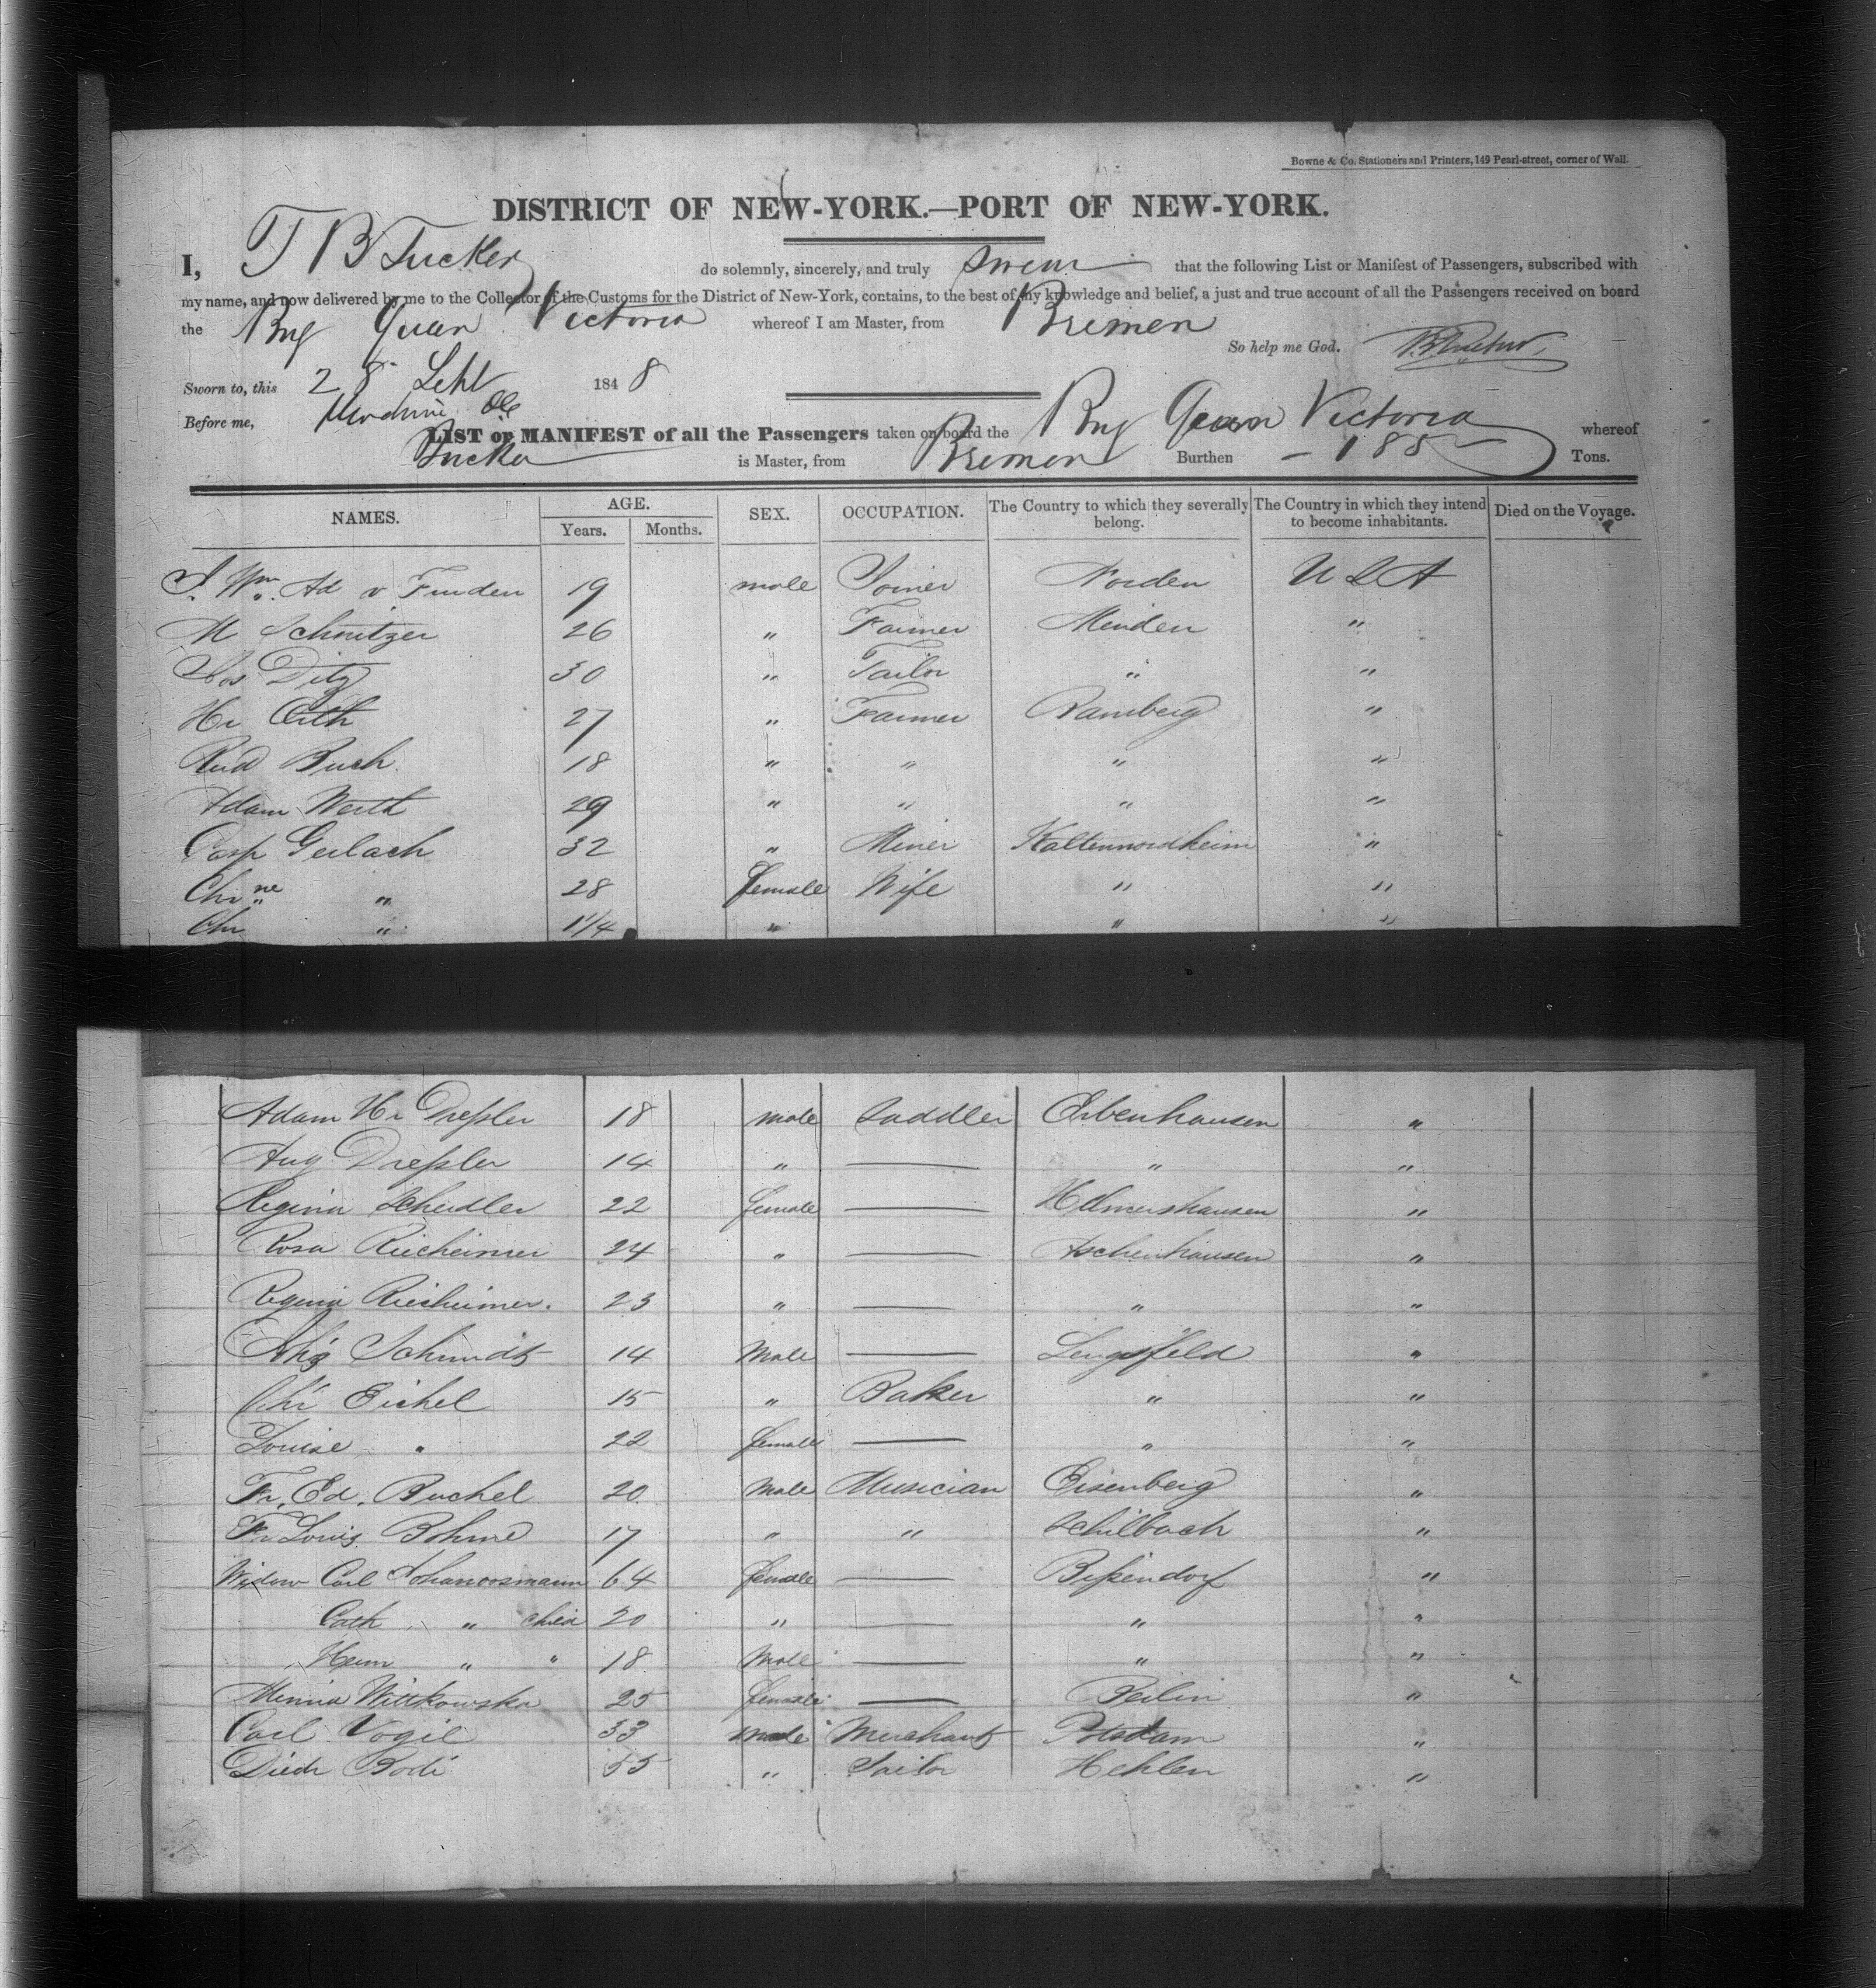 Bowne & Co. Stationers and Printers, 149 Pearl-street, corner of Wall.
DISTRICT OF NEW-YORK.—PORT OF NEW-YORK.
I, T B Tucker do solemnly, sincerely, and truly swear that the following List or Manifest of Passengers, subscribed with
my name, and now delivered by me to the Collector of the Customs for the District of New-York, contains, to the best of my knowledge and belief, a just and true account of all the Passengers received on board
the Brig Quean Victoria whereof I am Master, from Bremen
So help me God.
Sworn to, this 28 Sept 1848
Before me,
LIST OR MANIFEST of all the Passengers taken on board the Brig Queen Victoria whereof
Tucker is Master, from Bremen Burthen — 185 — Tons.
NAMES. AGE. Years. Months. SEX. OCCUPATION. The Country to which they severally belong. The Country in which they intend to become inhabitants. Died on the Voyage.
J. Wm. Ad v Finden 19 male Joiner Norden U S A
M Schnitzer 26 " Farmer Minden "
Ditz 30 " Tailor " "
Hr Orth 27 " Farmer Ramberg "
Rud Buch 18 " " " "
Adam Werth 29 " " " "
Casp Gerlach 32 " Miner Kaltennordheim "
Chrne " 28 female Wife " "
Chr " 1 1/4 " " "
Adam Hr Dreßler 18 male Saddler Erbenhausen "
Aug Dreßler 14 " — " "
Regina Scheidler 22 female — Helmershausen "
Rosa Riecheimer 24 " — Aschenhausen "
Regina Riesheimer. 23 " — " "
Schmidt 14 Male — Lengsfeld "
Chr Eichel 15 " Baker " "
Louise " 22 female — " "
Fr. Ed. Buchel 20 Male Musician Eisenberg "
Fr Louis Bohme 17 " " Schilbach "
Widow Carl Johannsmann 64 female — Bißendorf "
Cath " child 20 " — " "
Herm " " 18 Male — " "
Minna Wittkowska 25 female — Berlin "
Carl Vogel 33 male Merchant Potsdam "
Diedr Bode 55 " Tailor Hehlen "